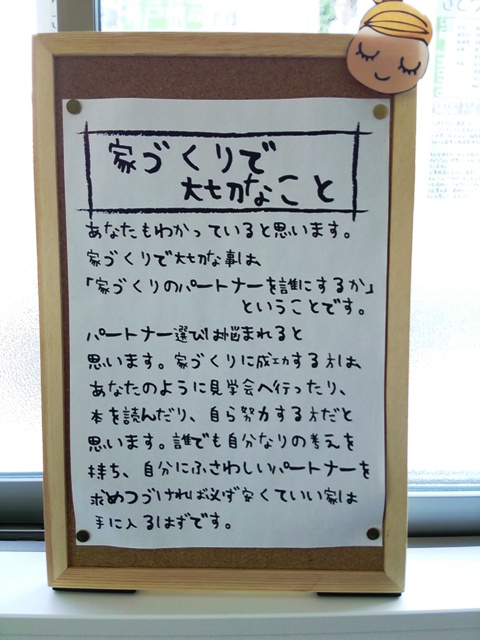 家づくりで
大切なこと
あなたもわかっていると思います。
家づくりで大切な事は、
「家づくりのパートナーを誰にするか」
ということです。
パートナー選びは悩まれると
思います。家づくりに成功する方は、
あなたのように見学会へ行ったり、
本を読んだり、自ら努力する方だと
思います。誰でも自分なりの考えを
持ち、自分にふさわしいパートナーを
求めつづければ必ず安くていい家は
手に入るはずです。